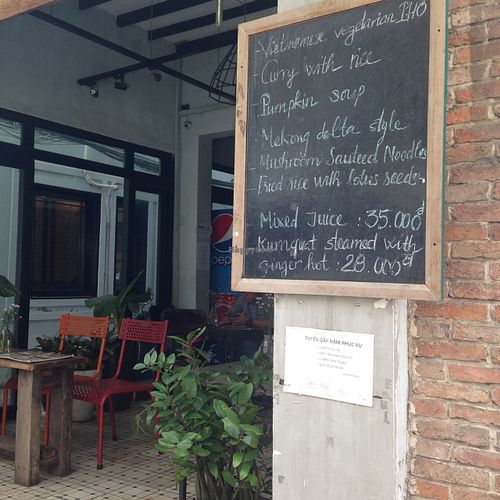 - Vietnamese vegetarian PHO
- Curry with rice
- Pumpkin soup
- Mekong delta style
- Mushroom Sauteed Noodles
- Fried rice with lotus seeds
Mixed Juice : 35.000đ
Kumquat steamed with
ginger hot : 28.000đ
pepsi
TUYỂN GẤP NAM PHỤC VỤ